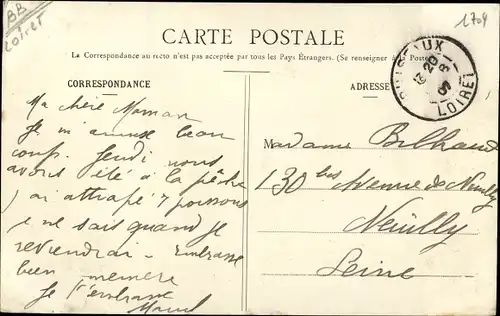 BB
Loiret
1704
CARTE POSTALE
La Correspondance au recto n'est pas acceptée par tous les Pays Étrangers. (Se renseigner
CORRESPONDANCE
ADRESSE
PUISEAUX
LOIRET
Ma chère Maman
Je m'amuse beau
coup. Jeudi nous
avons été à la pêche
j'ai attrapé 7 poissons
je ne sais quand je
reviendrai. Embrasse
bien memere
Je t'embrasse
Marcel
Madame Bilhaud
130 bis Avenue de Neuilly
Neuilly
Seine